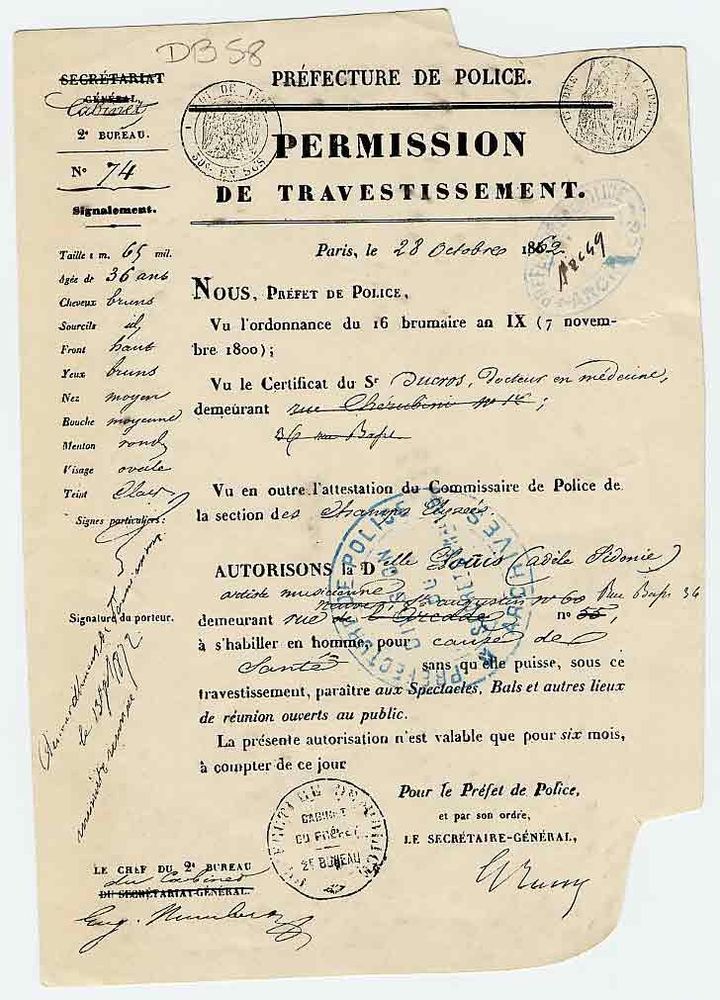 DB58
SECRÉTARIAT
GÉNÉRAL
Cabinet
2e BUREAU.
N° 74
Signalement.
Taille 1 m. 65 mil.
Agée de 36 ans
Cheveux bruns
Sourcils id
Front haut
Yeux bruns
Nez moyen
Bouche moyenne
Menton rond
Visage ovale
Teint clair
Signes particuliers:
Signature du porteur.
PRÉFECTURE DE POLICE.
PERMISSION
DE TRAVESTISSEMENT.
Paris, le 28 Octobre 1862
NOUS, PRÉFET DE POLICE,
Vu l'ordonnance du 16 brumaire an IX (7 novem-
bre 1800);
Vu le Certificat du Sr Ducros, Docteur en médecine,
demeurant rue Chérubini n°;
36 rue
Vu en outre l'attestation du Commissaire de Police de
la section des Champs Elysées.
AUTORISONS la Delle Louis (adèle Sidonie)
artiste musicienne
neuve St augustin n° 60 Rue 36
demeurant rue de l'Arcade n° 55,
à s'habiller en homme, pour cause de
Santé sans qu'elle puisse, sous ce
travestissement, paraître aux Spectacles, Bals et autres lieux
de réunion ouverts au public.
La présente autorisation n'est valable que pour six mois,
à compter de ce jour
Pour le Préfet de Police,
et par son ordre,
LE SECRÉTAIRE-GÉNÉRAL,
CABINET
DU PRÉFET
2E BUREAU
LE CHEF DU 2e BUREAU
du Cabinet
DU SECRÉTARIAT-GÉNÉRAL.